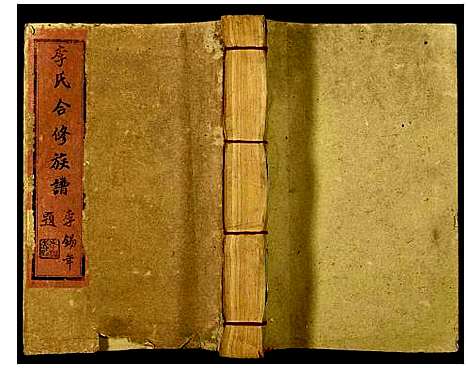 李氏合修族譜
李錫章
題